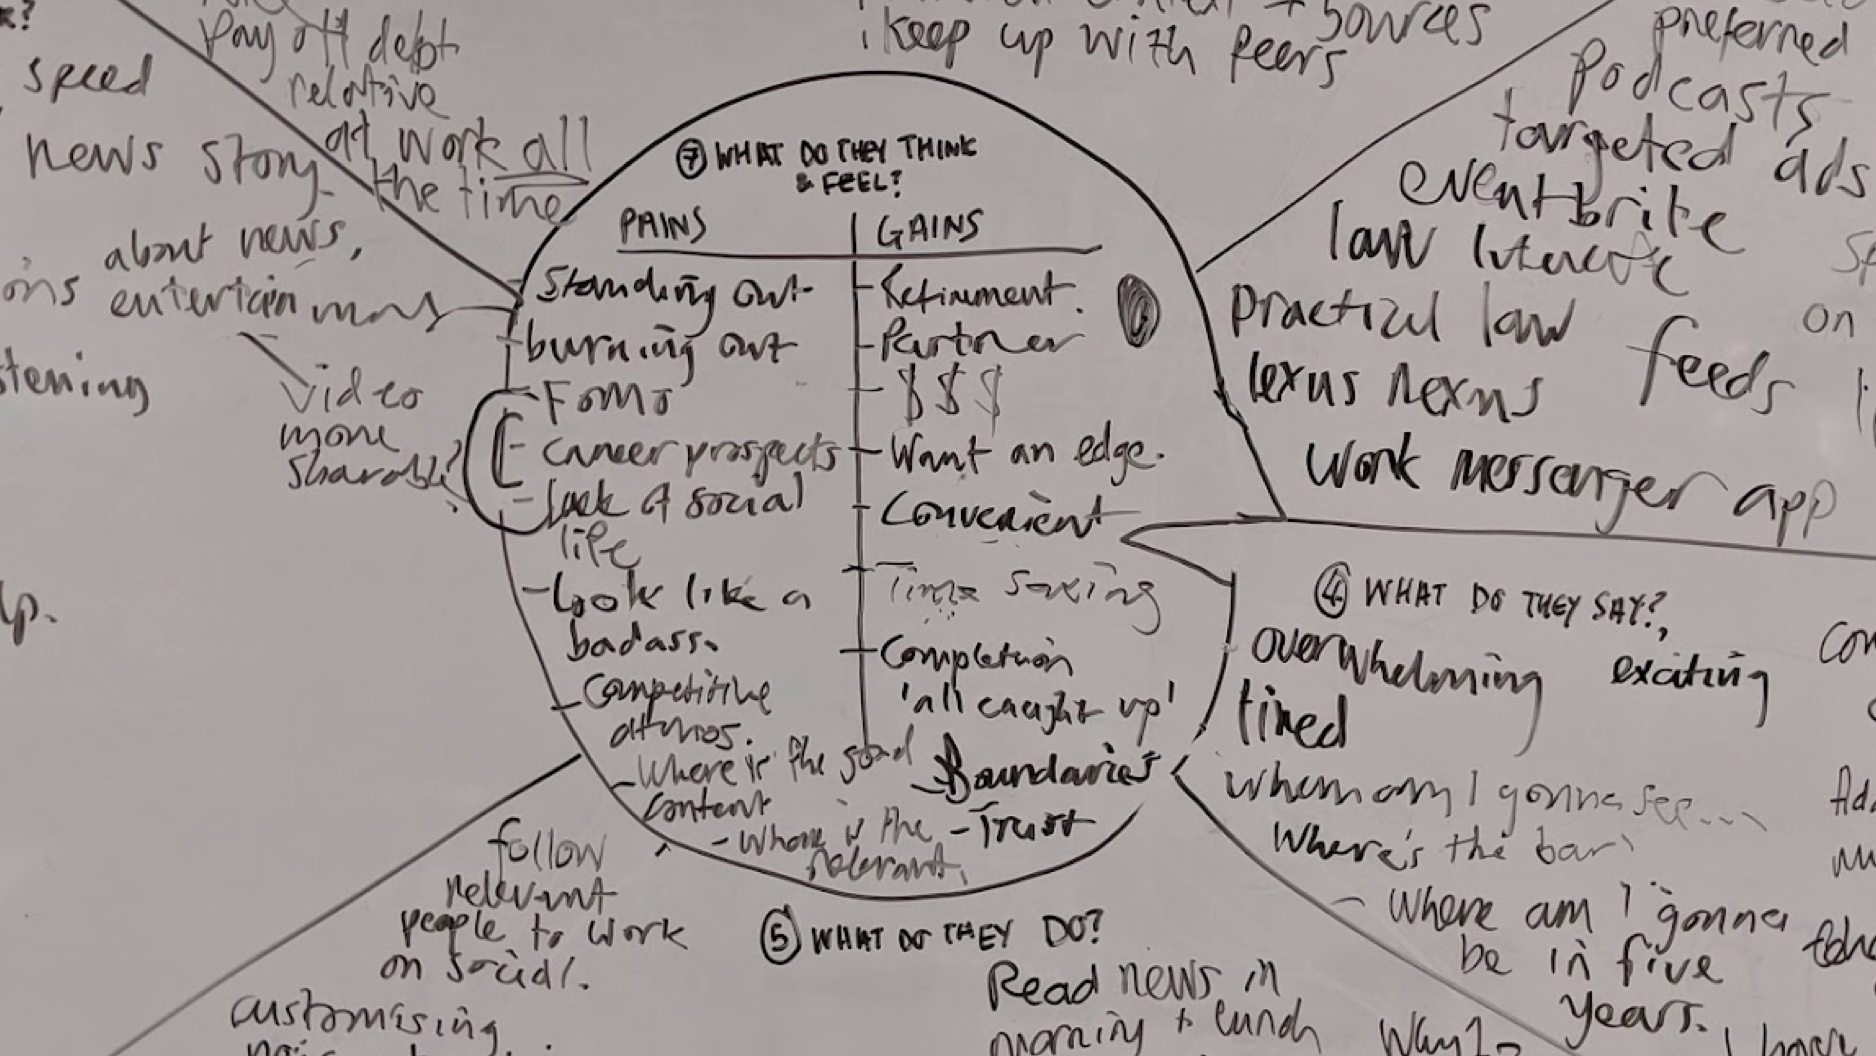 Pay off debt
relative
at work all
the time
speed
news story
about news,
entertain
video
more
sharable?
sources
keep up with peers
preferred
Podcasts
targeted ads
eventbrite
law
practical law
feeds
on
lexus nexus
work messenger app
⑦ WHAT DO THEY THINK
& FEEL?
PAINS
GAINS
Standing out
burning out
- FOMO
- career prospects
- lack of social
life
- Look like a
badass.
- Competitive
- Where is the good
content
- Where is the
relevant.
- Refinment.
- Partner
- $$$
- Want an edge.
- Convenient
- Time saving
- Completion
'all caught up'
- Boundaries
- Trust
④ WHAT DO THEY SAY?,
overwhelming exciting
tired
when am I gonna see...
Where's the bar
- Where am I gonna
be in five
years.
⑤ WHAT DO THEY DO?
Read news in
morning + lunch
follow
relevant
people to work
on social.
customising